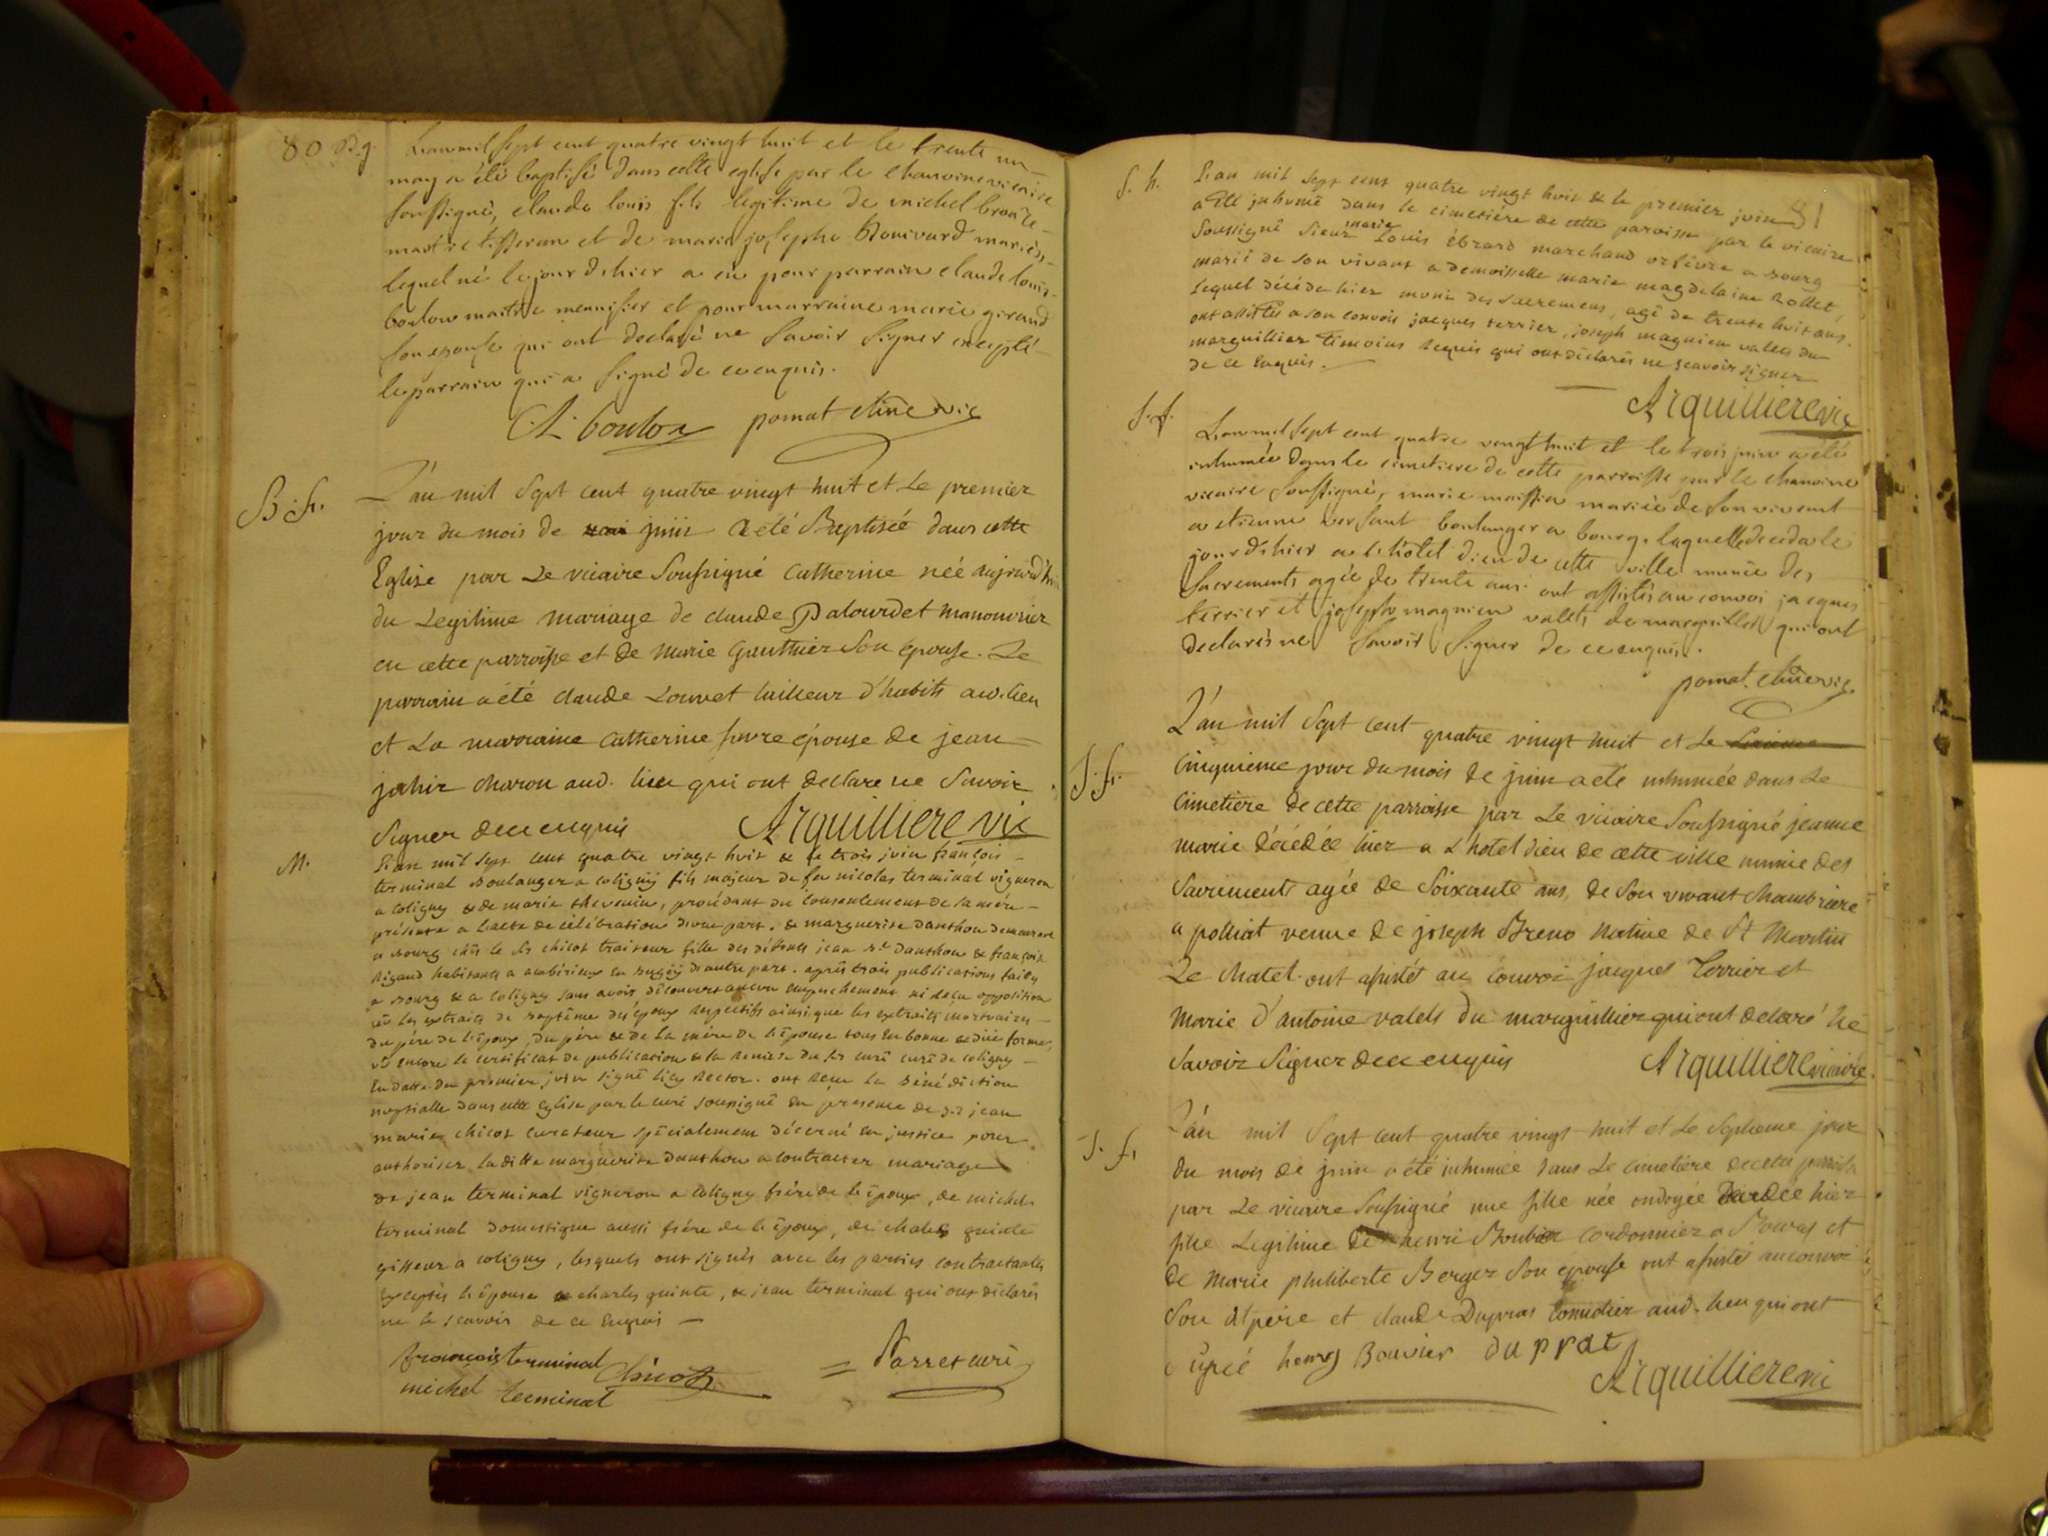 80 B. g.
L'an mil sept cent quatre vingt huit et le trente un
may a été baptisé dans cette eglise par le chanoine vicaire
soussigné, claude louis fils legitime de michel
maitre tisseran et de marie josephe Bouivard mariés,
lequel né le jour d'hier a eu pour parrain claude louis
boulon maitre menuisier et pour marraine marie giraud
son epouse qui ont declaré ne savoir signer excepté
le parrain qui a signé de ce enquis.
Cl. boulon pomat chne vic
B. f.
L'an mil sept cent quatre vingt huit et Le premier
jour du mois de juin a été Baptisée dans cette
Eglise par Le vicaire soussigné catherine née aujourd'hui
du Legitime mariage de claude Palourdet manouvrier
en cette parroisse et de Marie Gauthier son epouse. Le
parrain a été claude Louvet tailleur d'habits aud. lieu
et La marraine catherine favre épouse de jean
charon aud. lieu qui ont declare ne savoir
signer de ce enquis Arquilliere vic
M.
L'an mil sept cent quatre vingt huit & le trois juin françois
terminal Boulanger a coligny fils majeur de feu nicolas terminal vigneron
a coligny & de marie thevenin, procédant du consentement de sa mère
présente a l'acte de célébration d'une part. & marguerite danthon demeurant
a Bourg chès le Sr chicot traiteur fille des défunts jean Bte danthon & françoise
Rigaud habitants a ambérieux en Bugey d'autre part. après trois publications faites
a Bourg & a coligny sans avoir découvert aucun empechement ni reçu opposition
vû les extraits de baptême des époux respectifs ainsi que les extraits mortuaires
du père de l'époux, du père & de la mère de l'épouse tous en bonne & due forme,
vû encore le certificat de publication & la remise du Sr curé de coligny
en datte du premier juin signé rector. ont reçu la bénédiction
nuptialle dans cette eglise par le curé soussigné en présence de Sr jean
marie chicot curateur spécialement décerné en justice pour
authoriser laditte marguerite danthon a contracter mariage
de jean terminal vigneron a coligny frère de l'époux, de michel
terminal domestique aussi frère de l'époux, de charles quinte
a coligny, lesquels ont signés avec les parties contractantes
exceptés l'épouse & charles quinte, & jean terminal qui ont déclarés
ne le scavoir de ce enquis
françois terminal Chicot = Parret curé
michel terminal
81
S. h.
L'an mil sept cent quatre vingt huit & le premier juin
a été inhumé dans le cimetière de cette paroisse par le vicaire
marie
soussigné sieur Louis ébrard marchand orfèvre a Bourg
marié de son vivant a demoiselle marie magdelaine Rollet,
lequel décédé hier muni des sacremens, agé de trente huit ans.
ont assistés a son convoi jacques terrier, joseph magnien valets du
marguillier témoins requis qui ont déclarés ne scavoir signer
de ce enquis.
Arquilliere vic
S. f.
L'an mil sept cent quatre vingt huit et le trois juin a été
inhumée dans le cimetiere de cette parroisse par le chanoine
vicaire soussigné, marie maissia mariée de son vivant
a etienne versaut boulanger a bourg. laquelle décéda le
jour d'hier a l'hôtel dieu de cette ville munie des
sacrements agée de trente ans. ont assistés au convoi jacques
terrier et joseph magnien valets de marguillier qui ont
declarés ne savoir signer de ce enquis.
pomat chne vic.
S. f.
L'an mil sept cent quatre vingt huit et le
cinquieme jour du mois de juin a été inhumée dans Le
cimetiere de cette parroisse par Le vicaire soussigné jeanne
marie décédée hier a L'hotel dieu de cette ville munie des
sacrements agée de soixante ans, de son vivant chambriere
a polliat veuve de joseph Breno native de St Martin
Le chatel. ont assisté au convoi jacques Terrier et
Marie d'antoine valets du marguillier qui ont declaré ne
savoir signer de ce enquis Arquilliere vicaire.
S. f.
L'an mil sept cent quatre vingt huit et Le septieme jour
du mois de juin a été inhumée dans Le cimetiere de cette parroisse
par Le vicaire soussigné une fille née ondoyée decedée hier
fille Legitime de henri Bouvier cordonnier a Bourg et
de Marie philiberte Berger son epouse ont assisté au convoi
son dt pere et claude Dupras aud. lieu qui ont
signé henry Bouvier duprat
Arquilliere vic